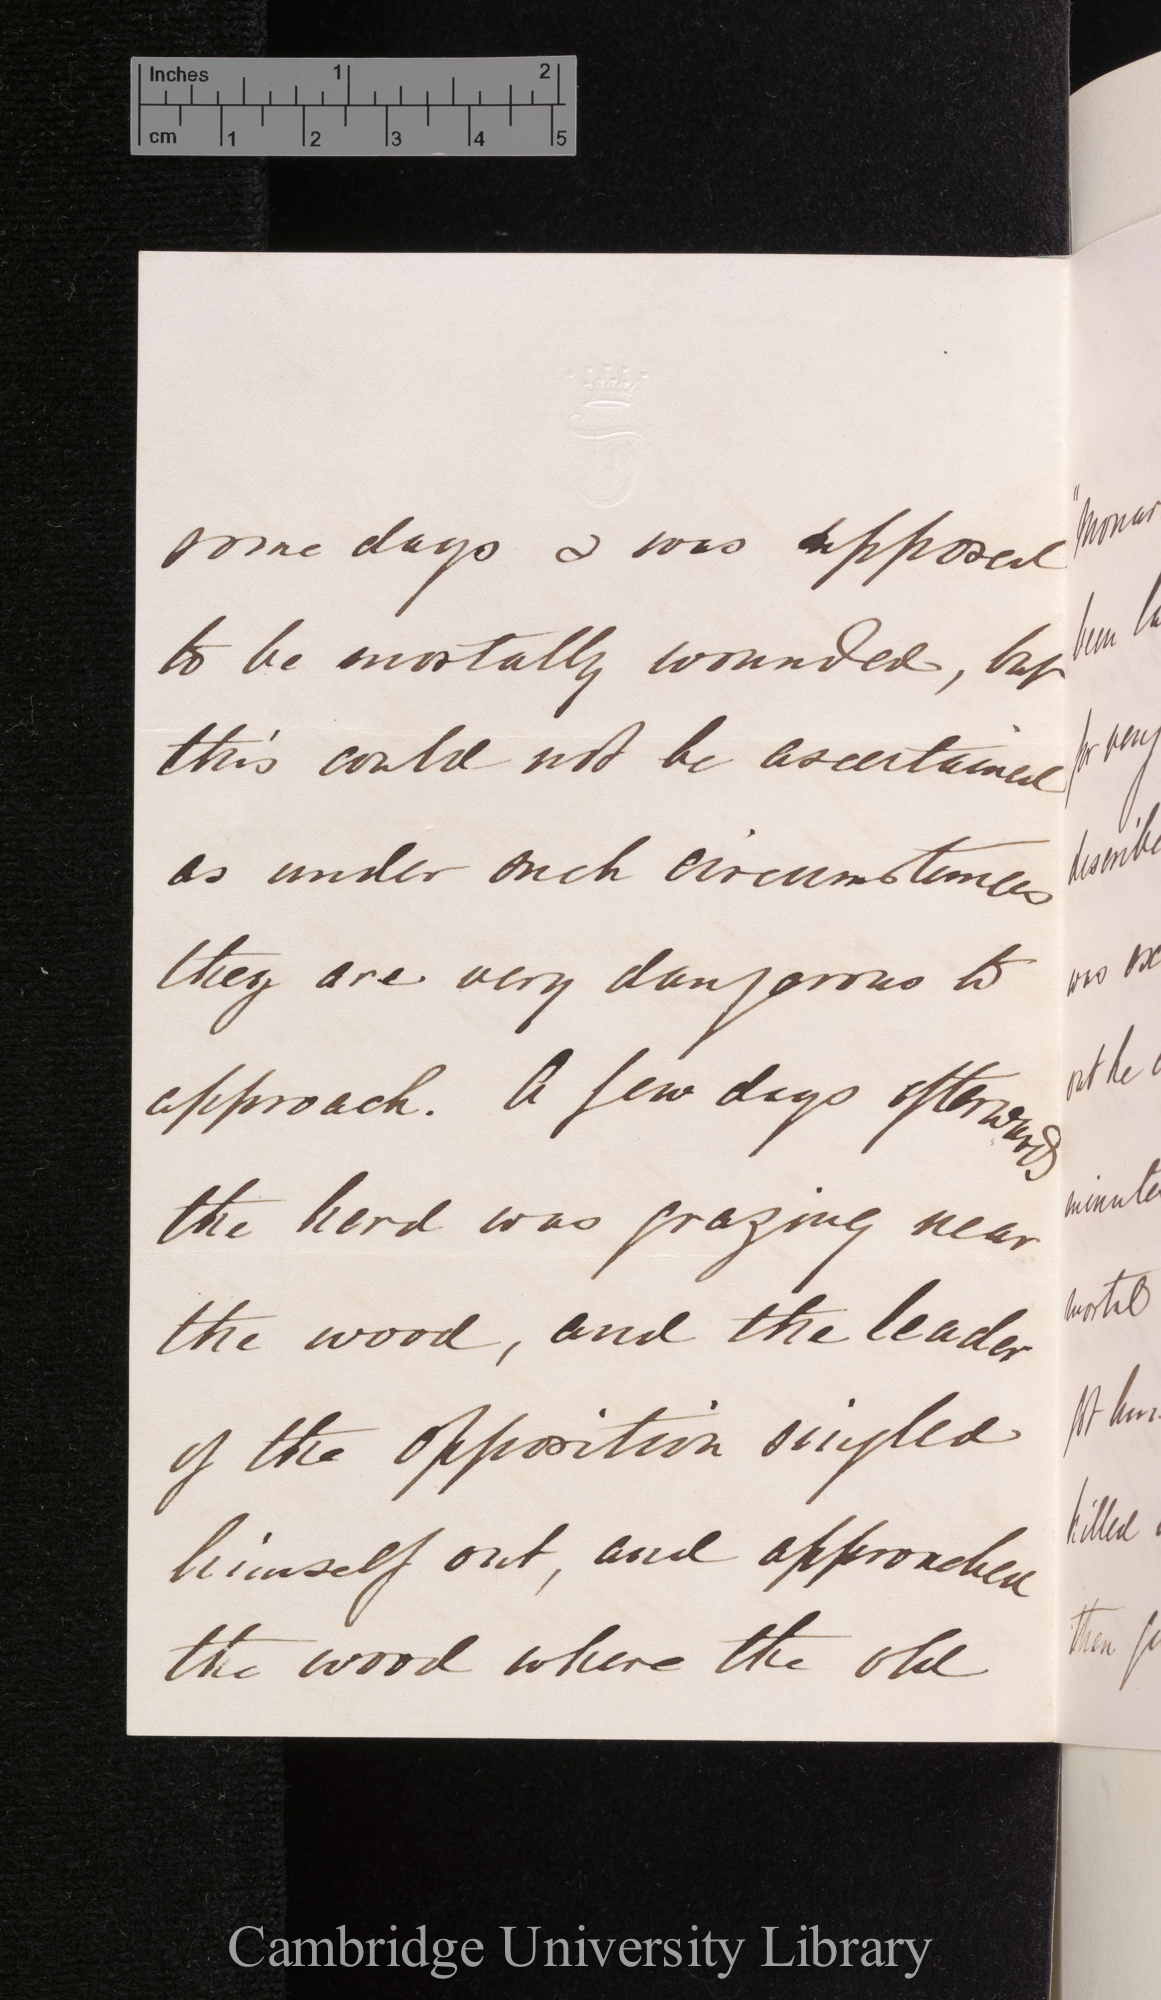 Inches 1 2
cm 1 2 3 4 5
some days & was supposed
to be mortally wounded, but
this could not be ascertained
as under such circumstances
they are very dangerous to
approach. A few days afterwards
the herd was grazing near
the wood, and the leader
of the opposition singled
himself out, and approached
the wood where the old
been
for very
was
out he
killed
then
Cambridge University Library